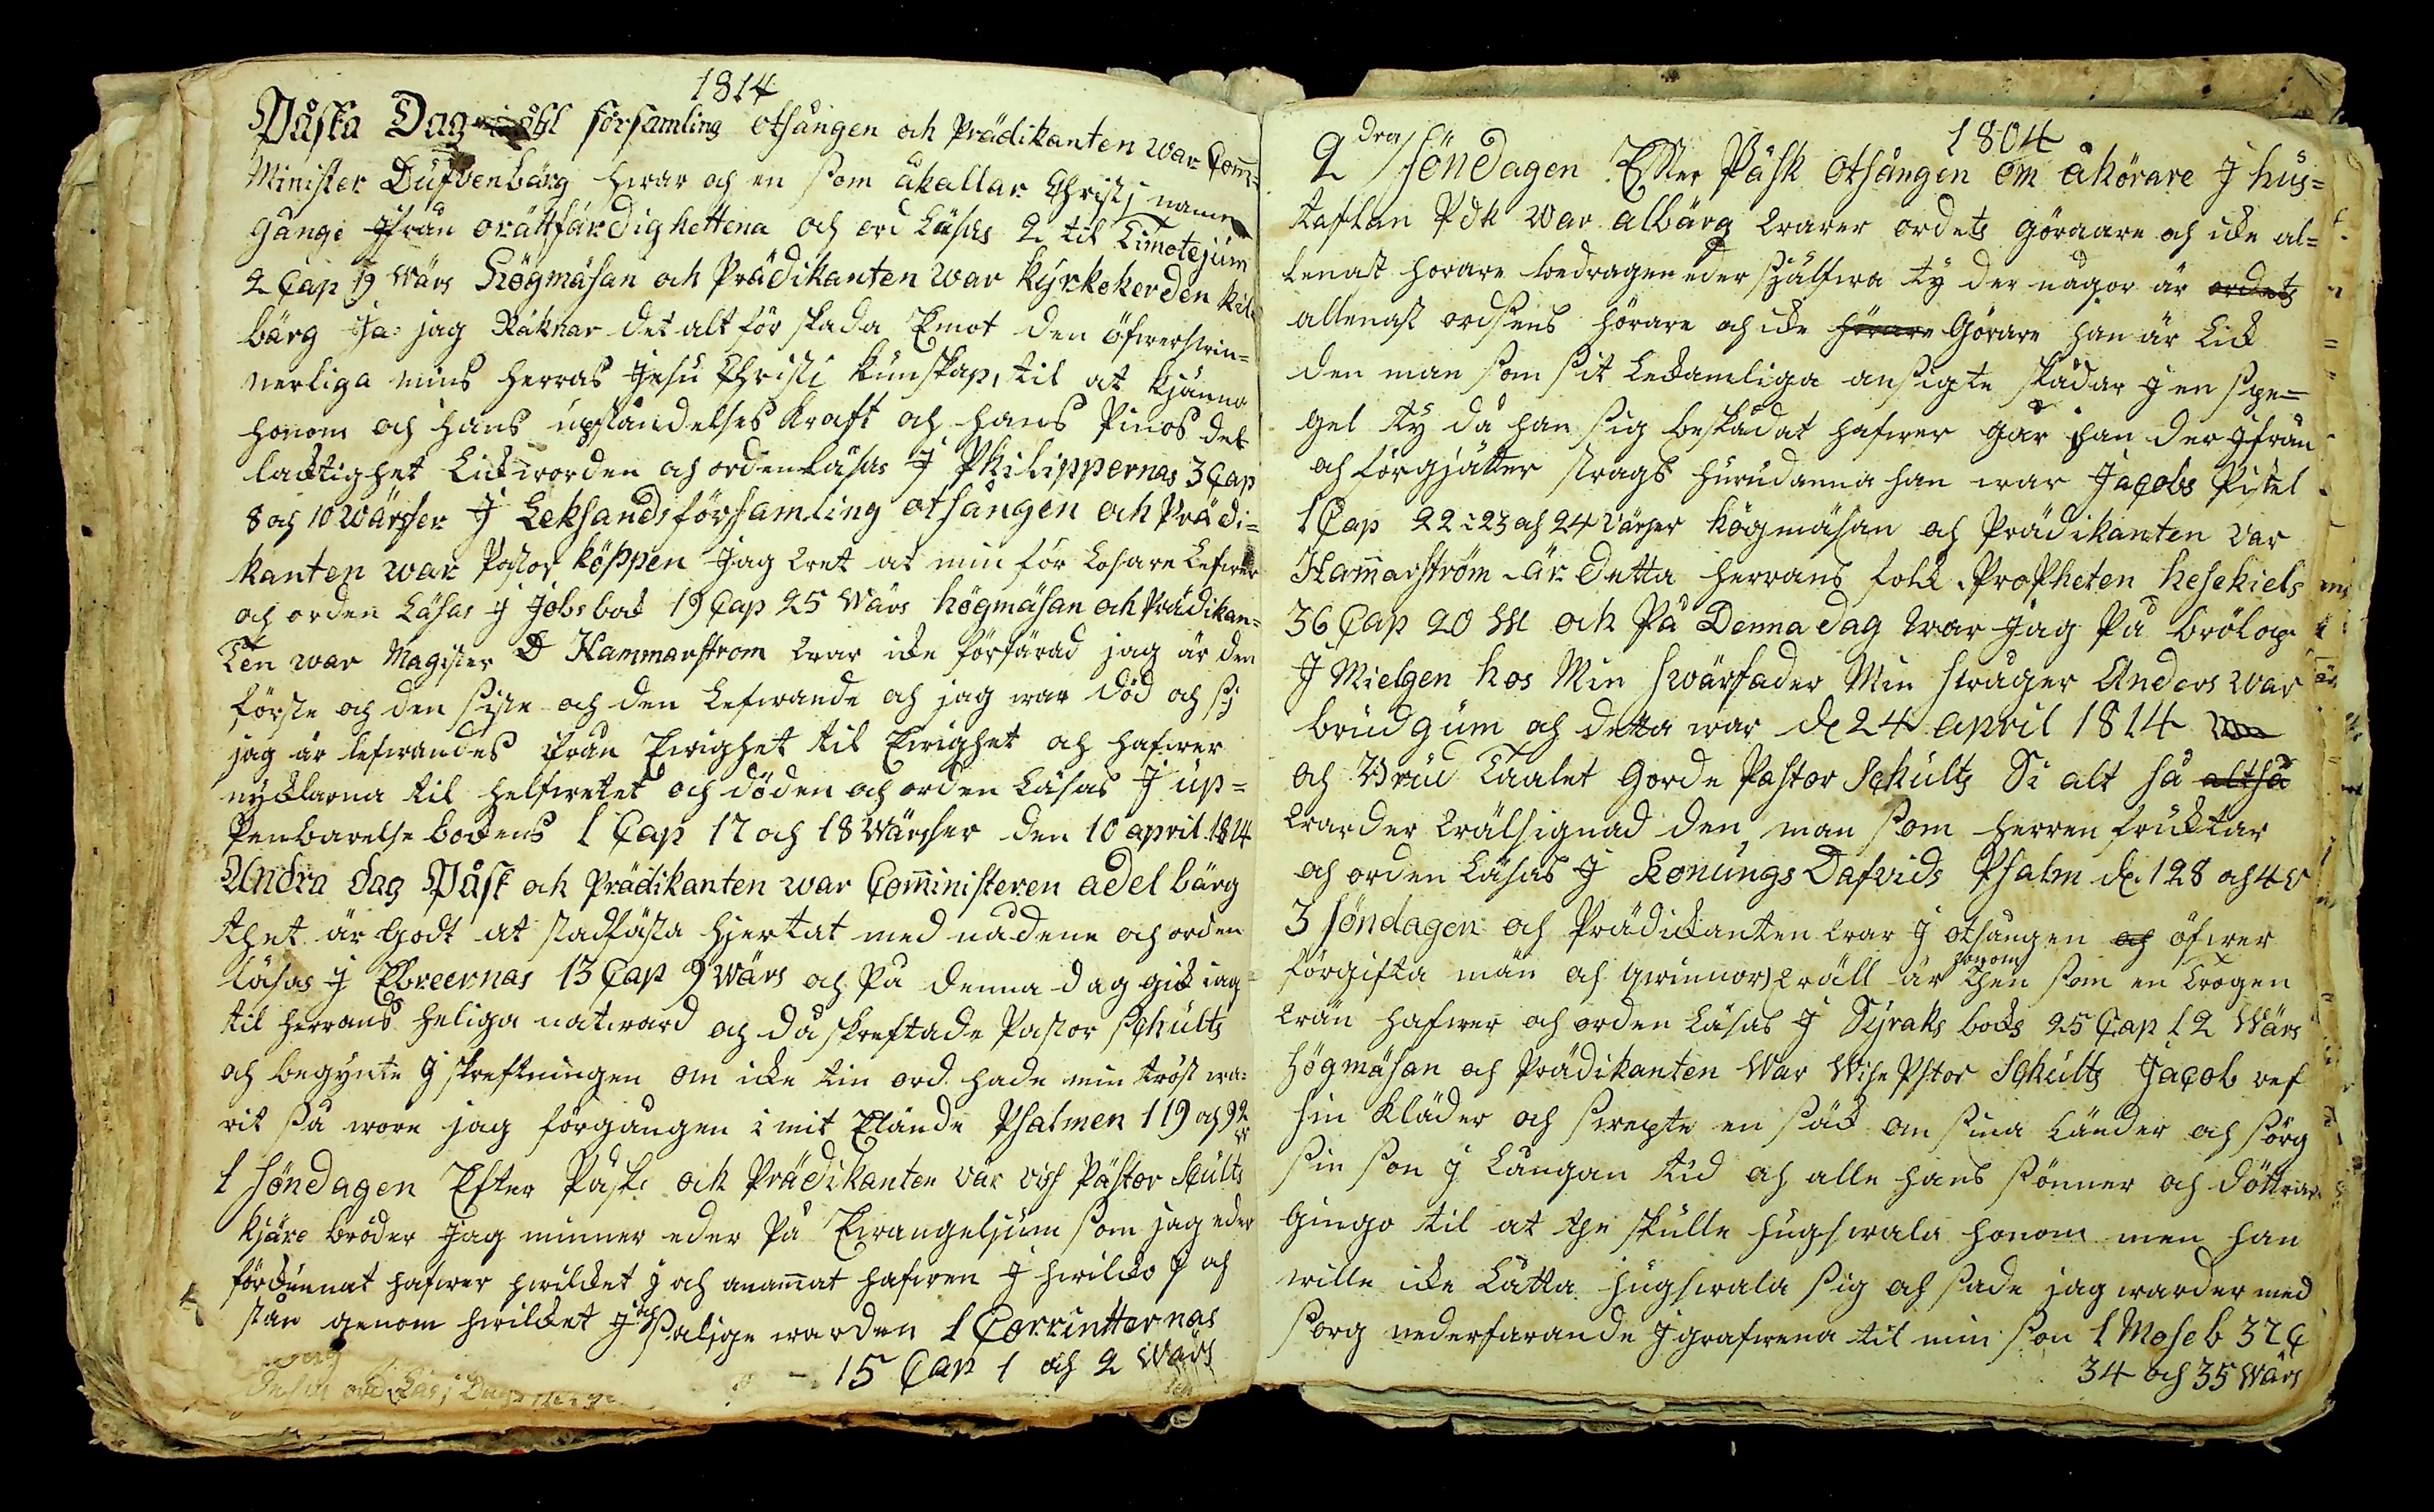 1814
Påska Dag åhl församling otsången och Prädikanten war Com=
Minister Dufvenbärg hwar och en som åkallar Christi namn
gånge Jfrån orättfärdighettena och ord Läsas 2 til Timotejum
2 Cap 19 Wärs Högmäsan och Prädikanten war kyrkoherden kil
bärg Ja: jag Räknar det alt för skada Emot den öfwerswin=
nerliga mins herras Jesu Christi kunskap, til at kjänna
honom och hans upståndelses kraft och hans Pinos del
lacktighet Lickworden och orden Läsas J Philippernas 3 Cap
8 och 10 wärsser J Leksands församling otsången och Prädi=
kanten war Pastor köppen Jag wet at min för Losare Lefwer
och orden Läsas J Jobs bok 19 Cap 25 Wärs högmäsan och Prädikan=
Ten war Magister D Hammarstrom war icke förfärad jag är den
förste och den siste och den Lefwande och jag war död och si
jag är lefwandes från Ewighet til Ewighet och hafwer
nycklarna til helfwetet och döden och orden Läsas J up=
Penbarelse bockens 1 Cap 17 och 18 Wärsser den 10 april 1814
Andra dag Påsk och Prädikanten war Comministeren adelbärg
thet är Godt at stadfästa hjertat med nådene och orden
läsas J Ebreernas 13 Cap 9 Wärs och På denna dag gick iag
til herrans heliga natward och då skreftade Pastor schults
och begynte J skreftningen om icke tin ord hade min tröst wa=
rit så wore jag förgången i mit Elände Psalmen 119 och 92
w
1 Söndagen Efter Påsk och Prädikanten var vise Pastor Scults
kjäre bröder Jag minner eder På Ewangeljum som jag eder
förckunnat hafwer hwilcket J och anammat hafwen J hwilcko J och
stån genom hwilcket J och salige warden 1 Corrintternas
15 Cap 1 och 2 Wärs
1804
2 dra Söndagen Efter Påsk otsången om åhörare J hus=
taflan Pdk war albärg warer ordets göraare och icke al=
lenast horare bedragen eder sjålfwa ty der någor är ordets
allenast ordsens hörare och icke hörare Görare han är Lick
den man som sit Leckamliga ansigte skådar J en spe=
gel ty då han sig beskådat hafwer går han der Jfrån
och förgjätter strags hurudanna han war Jacobs Pistel
1 Cap 22: 23 och 24 Värser högmäsan och Prädikanten var
Hammarström är detta herrans folck Propheten hesekiels
36 Cap 20 W och På Denna dag war Jag På brölop
J Mielgen hos Min swärfader Min swåger Anders war
brudgum och detta war d 24 april 1814
och Brud Taalet Gorde Pastor Schults Si alt så altså
warder wälsignad den man som herren fruktar
och orden Läsas J Konungs Dafvids Psalm d. 128 och 4 v
3 Söndagen och Prädickanten war J otsången och öfwer
förgifta män och qwinnor) wäll är honom then som en Trogen
wän hafwer och orden Läsas J Syraks bocks 25 Cap 12 Wärs
högmäsan och Prädikanten War Wise Pstor Schults Jacob ref
sin kläder och swepte en säck om sina Länder och sörg
sin son J Långan tid och alle hans sönner och döttrar
Gingo til at the skulle hugswala honom men han
wille icke Låtta hugswala sig och sade jag warder med
sorg nederfarande J grafwena til min son 1 Mose b 37 C
34 och 35 Wärs